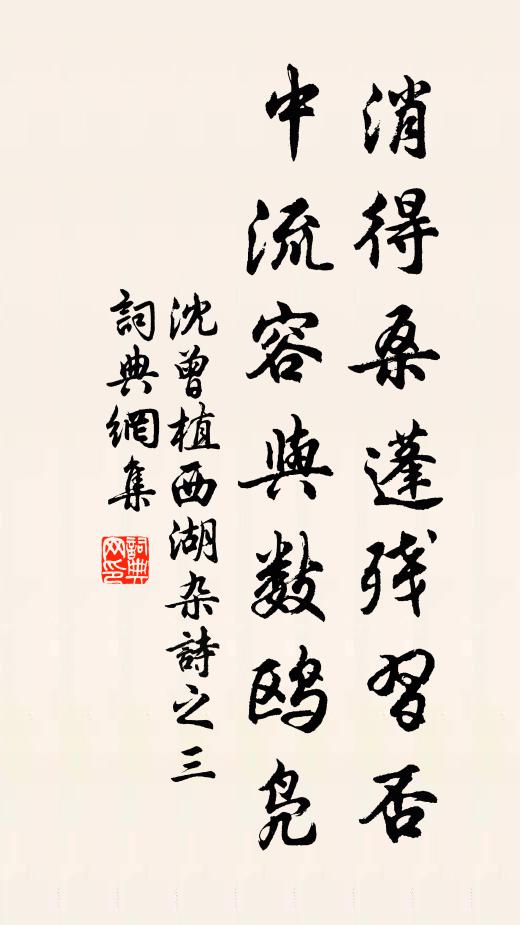 消得桑蓬残習否
中流容與數鸥凫
沈曾植西湖杂詩之三
詞典網集
詞典网印